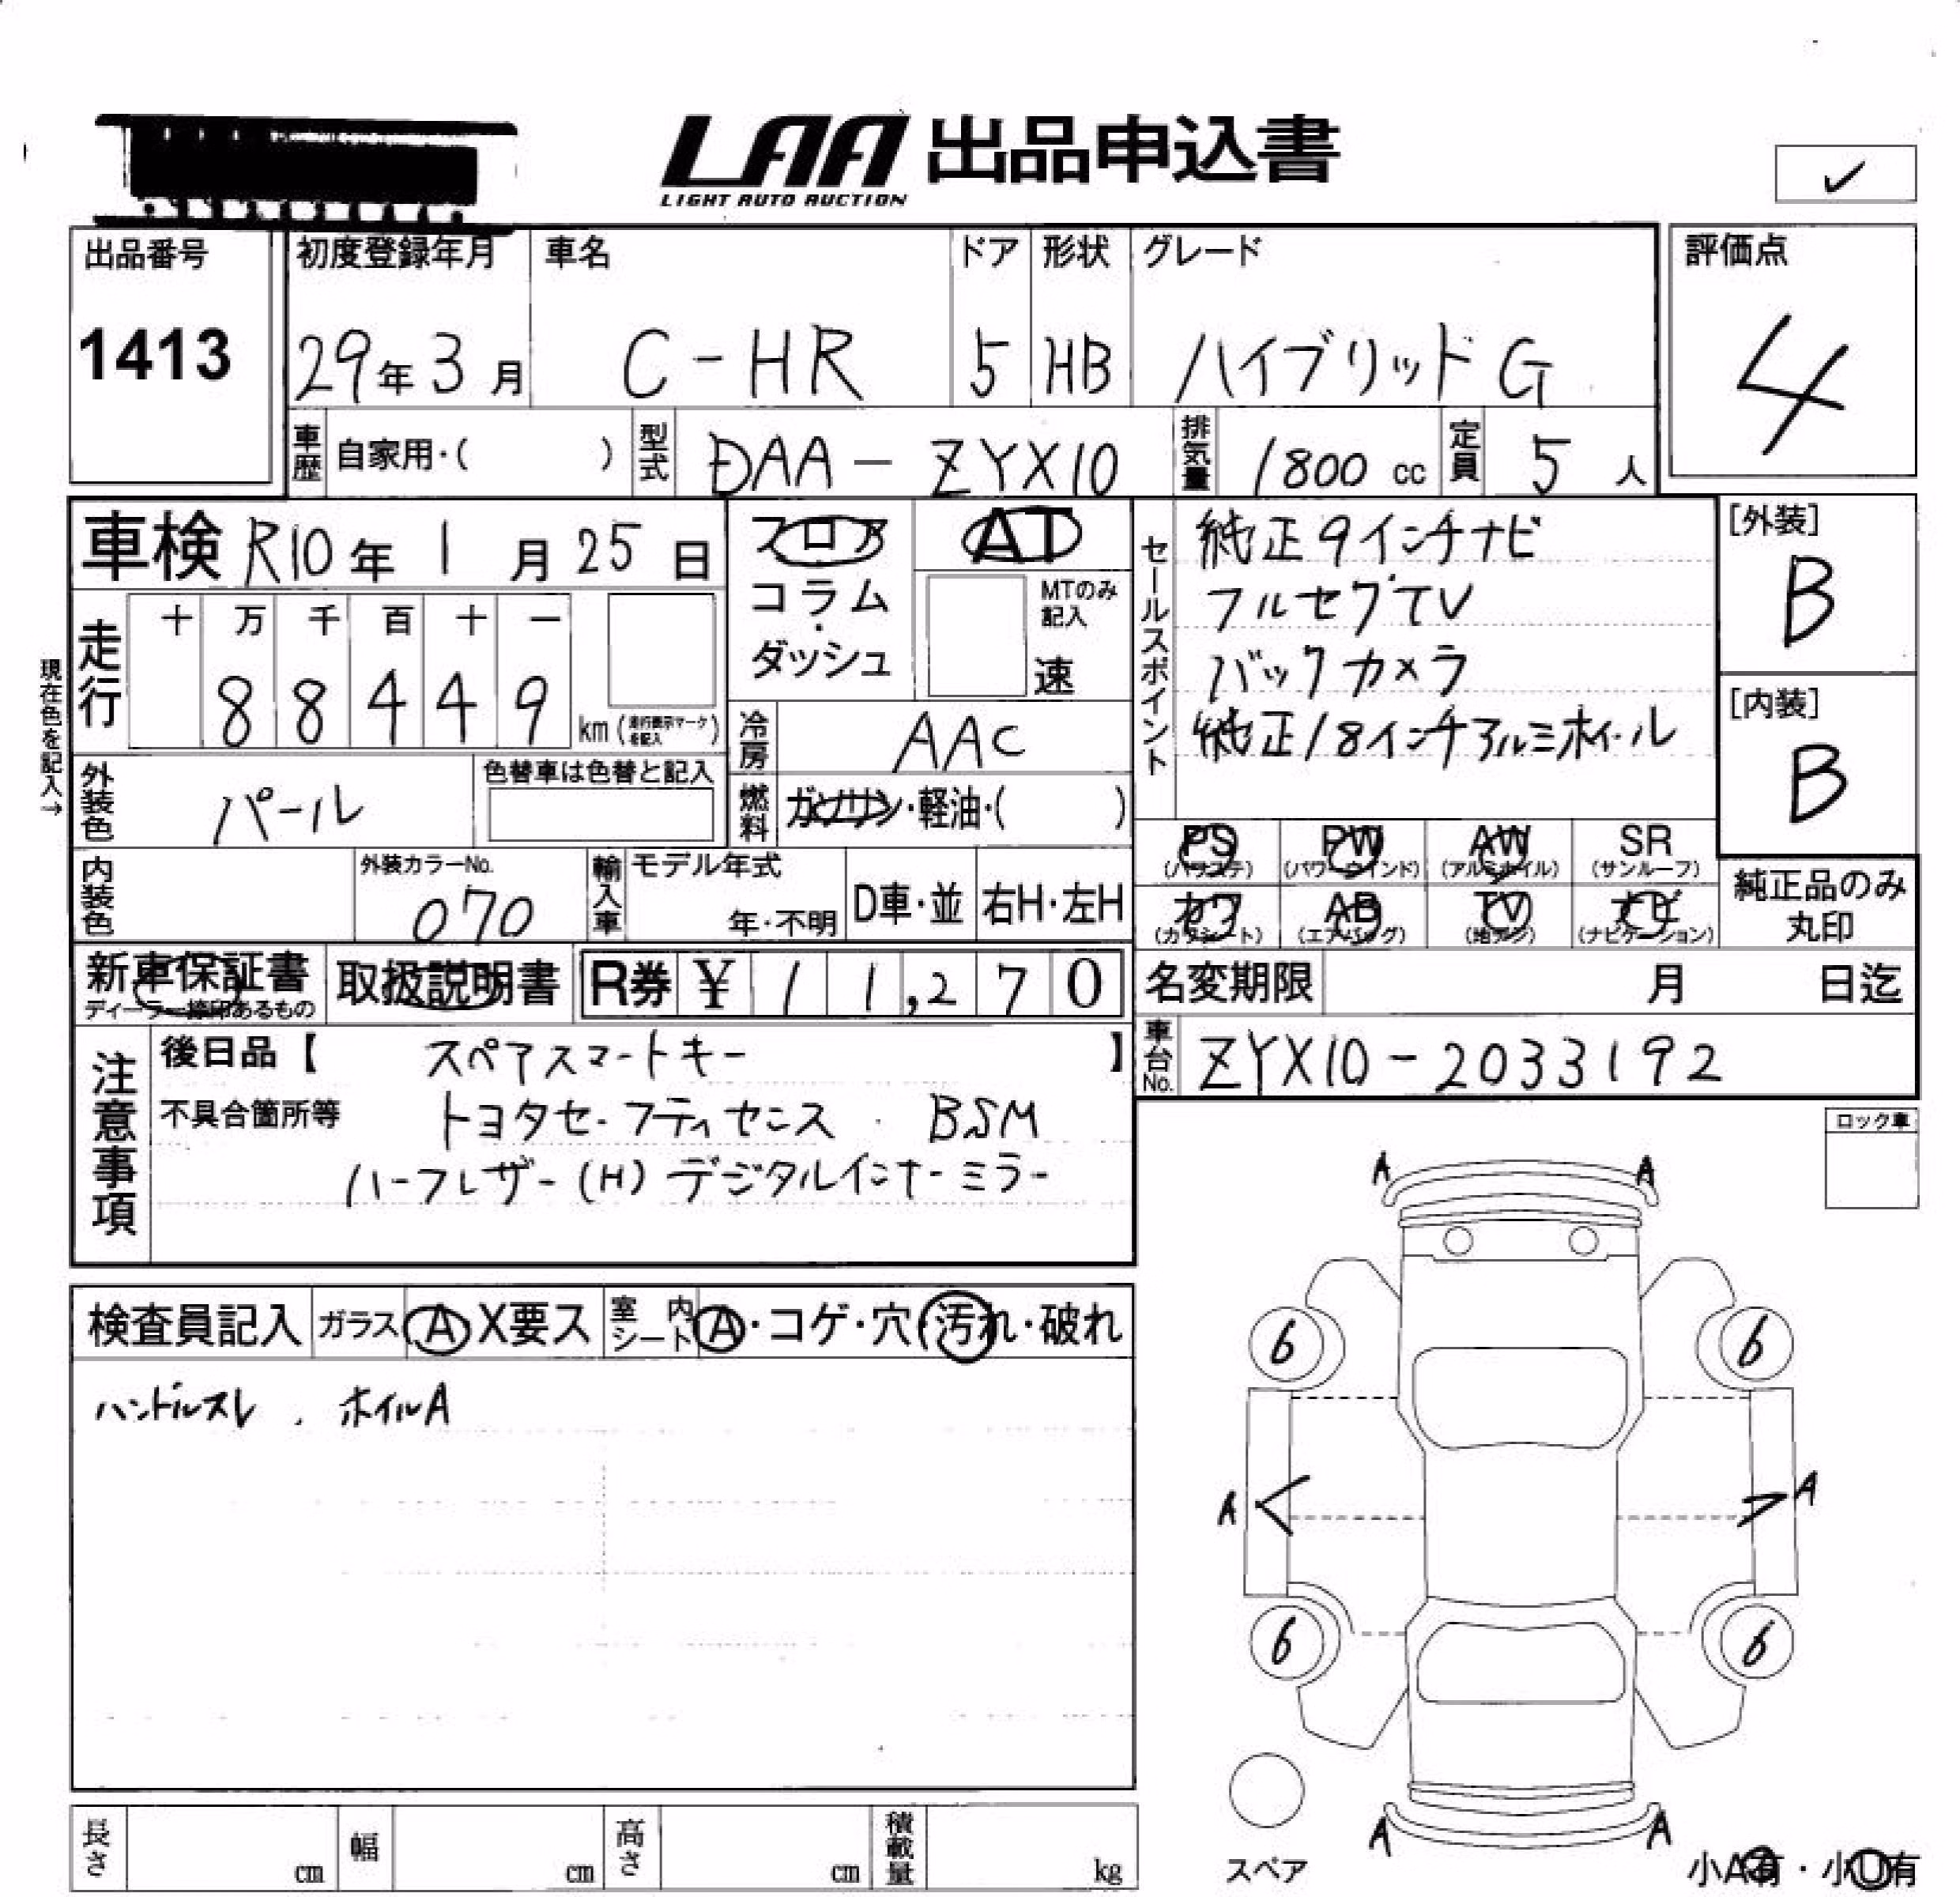 LAA 出品申込書
LIGHT AUTO AUCTION
出品番号
1413
初度登録年月
29年3月
車名
C-HR
ドア
5
形状
HB
グレード
ハイブリッドG
評価点
4
車歴 自家用・( )
型式 DAA-ZYX10
排気量 1800cc
定員 5人
車検 R10年1月25日
フロア
コラム
・
ダッシュ
AT
MTのみ
記入
速
セールスポイント
純正9インチナビ
フルセグTV
バックカメラ
純正18インチアルミホイール
[外装]
B
[内装]
B
現在色を記入→
走行
十 万 千 百 十 一
88449
km(走行表示マークを記入)
冷房 AAC
外装色 パール
色替車は色替と記入
燃料 ガソリン・軽油・( )
PS (パワステ)
PW (パワーウインド)
AW (アルミホイル)
SR (サンルーフ)
カワ (カワシート)
AB (エアバッグ)
TV (地デジ)
ナビ (ナビゲーション)
純正品のみ
丸印
内装色
外装カラーNo.
070
輸入車
モデル年式
年・不明
D車・並
右H・左H
新車保証書
ディーラー捺印あるもの
取扱説明書
R券 ¥11,270
名変期限 月 日迄
車台No. ZYX10-2033192
注意事項
後日品【 スペアスマートキー 】
不具合箇所等 トヨタセーフティセンス BSM
ハーフレザー(H) デジタルインナーミラー
ロック車
検査員記入
ガラス A X要ス
室内シート A・コゲ・穴(汚れ・破れ
ハンドルスレ . ホイルA
A A
6 6
A A
6 6
A A
スペア
小A有・小U有
長さ cm
幅 cm
高さ cm
積載量 kg